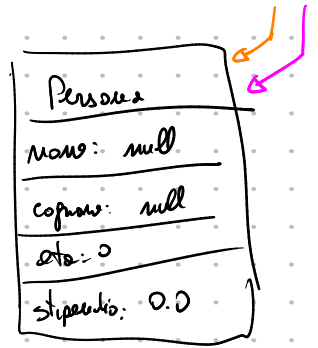 Persona
nome: null
cognome: null
eta: 0
stipendio: 0.0